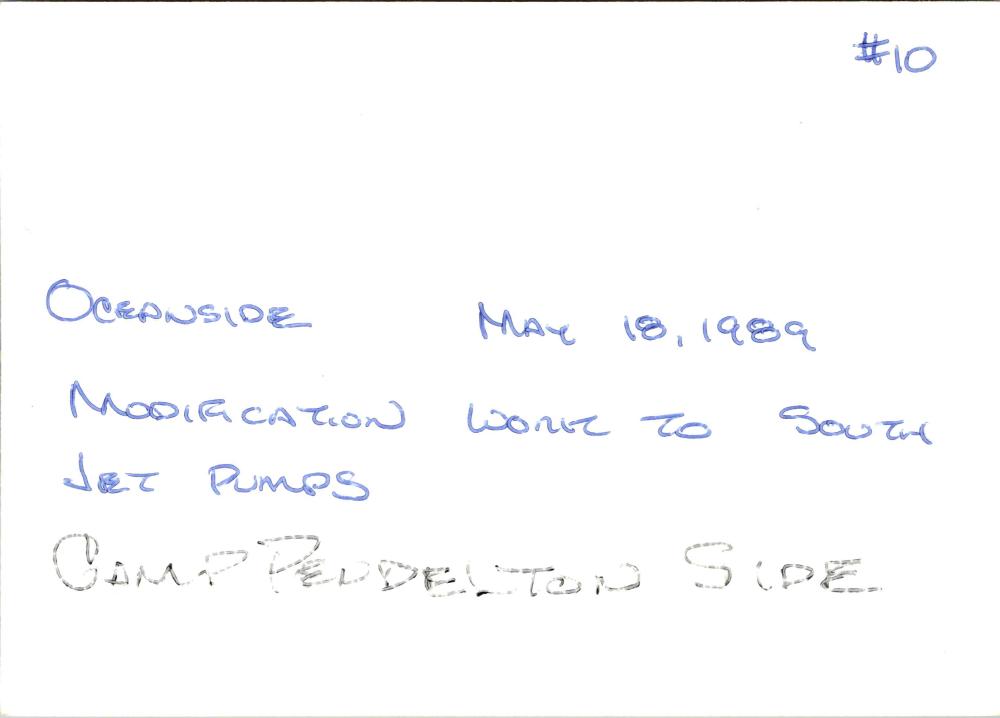 #10
OCEANSIDE MAY 18, 1989
MODIFICATION WORK TO SOUTH
JET PUMPS
CAMP PENDELTON SIDE